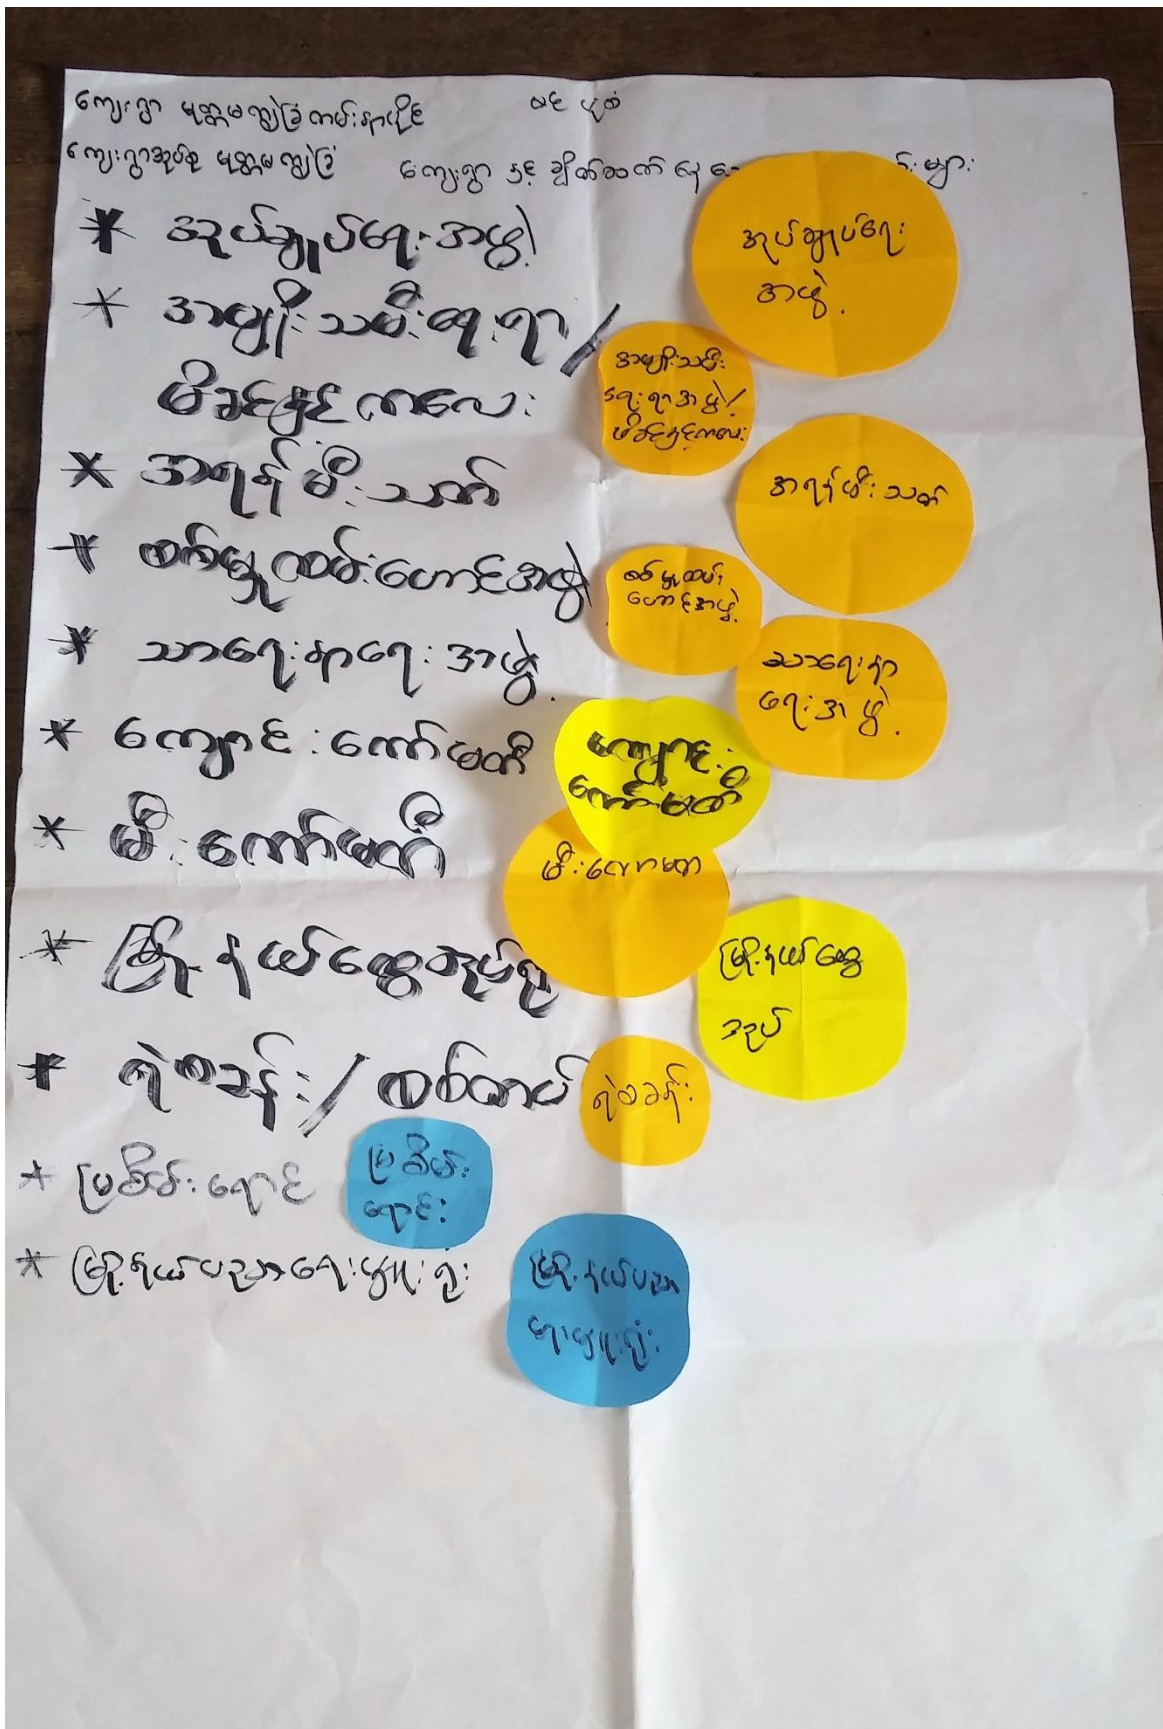 ကျေးရွာ မုတ္တမကျွဲခြံကမ်းနားပိုင်း
ဗင် ပုံစံ
ကျေးရွာအုပ်စု မုတ္တမကျွဲခြံ
ကျေးရွာ နှင့် ချိတ်ဆက် နေ
များ
* အုပ်ချုပ်ရေးအဖွဲ့
* အမျိုးသမီးရေးရာ /
မိခင်နှင့်ကလေး
* အရန်မီးသတ်
* စစ်မှုထမ်းဟောင်းအဖွဲ့
* သာရေးနာရေးအဖွဲ့
* ကျောင်းကော်မတီ
* မီးကော်မတီ
* မြို့နယ်ထွေအုပ်ရုံး
* ရဲစခန်း / စစ်တပ်
* မြစိမ်းရောင်
* မြို့နယ်ပညာရေးမှူးရုံး
အုပ်ချုပ်ရေး
အဖွဲ့
အမျိုးသမီး
ရေးရာအဖွဲ့/
မိခင်နှင့်ကလေး
အရန်မီးသတ်
စစ်မှုထမ်း
ဟောင်းအဖွဲ့
သာရေးနာ
ရေးအဖွဲ့
ကျောင်း
ကော်မတီ
မီးကော်မတီ
မြို့နယ်ထွေ
အုပ်
ရဲစခန်း
မြစိမ်း
ရောင်း
မြို့နယ်ပညာ
ရေးမှူးရုံး